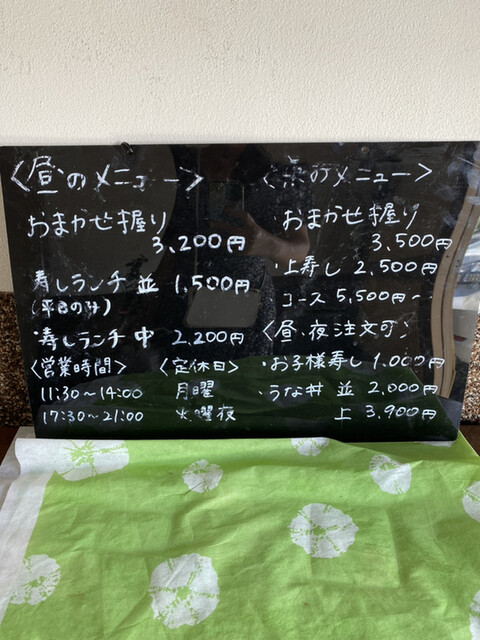 〈昼のメニュー〉
おまかせ握り
3,200円
寿しランチ 並 1,500円
(平日のみ)
・寿しランチ 中 2,200円
〈営業時間〉
11:30〜14:00
17:30〜21:00
〈定休日〉
月曜
火曜夜
〈夜のメニュー〉
・おまかせ握り
3,500円
・上寿し 2,500円
コース 5,500円〜
〈昼、夜注文可〉
・お子様寿し 1,000円
・うな丼 並 2,000円
上 3,900円